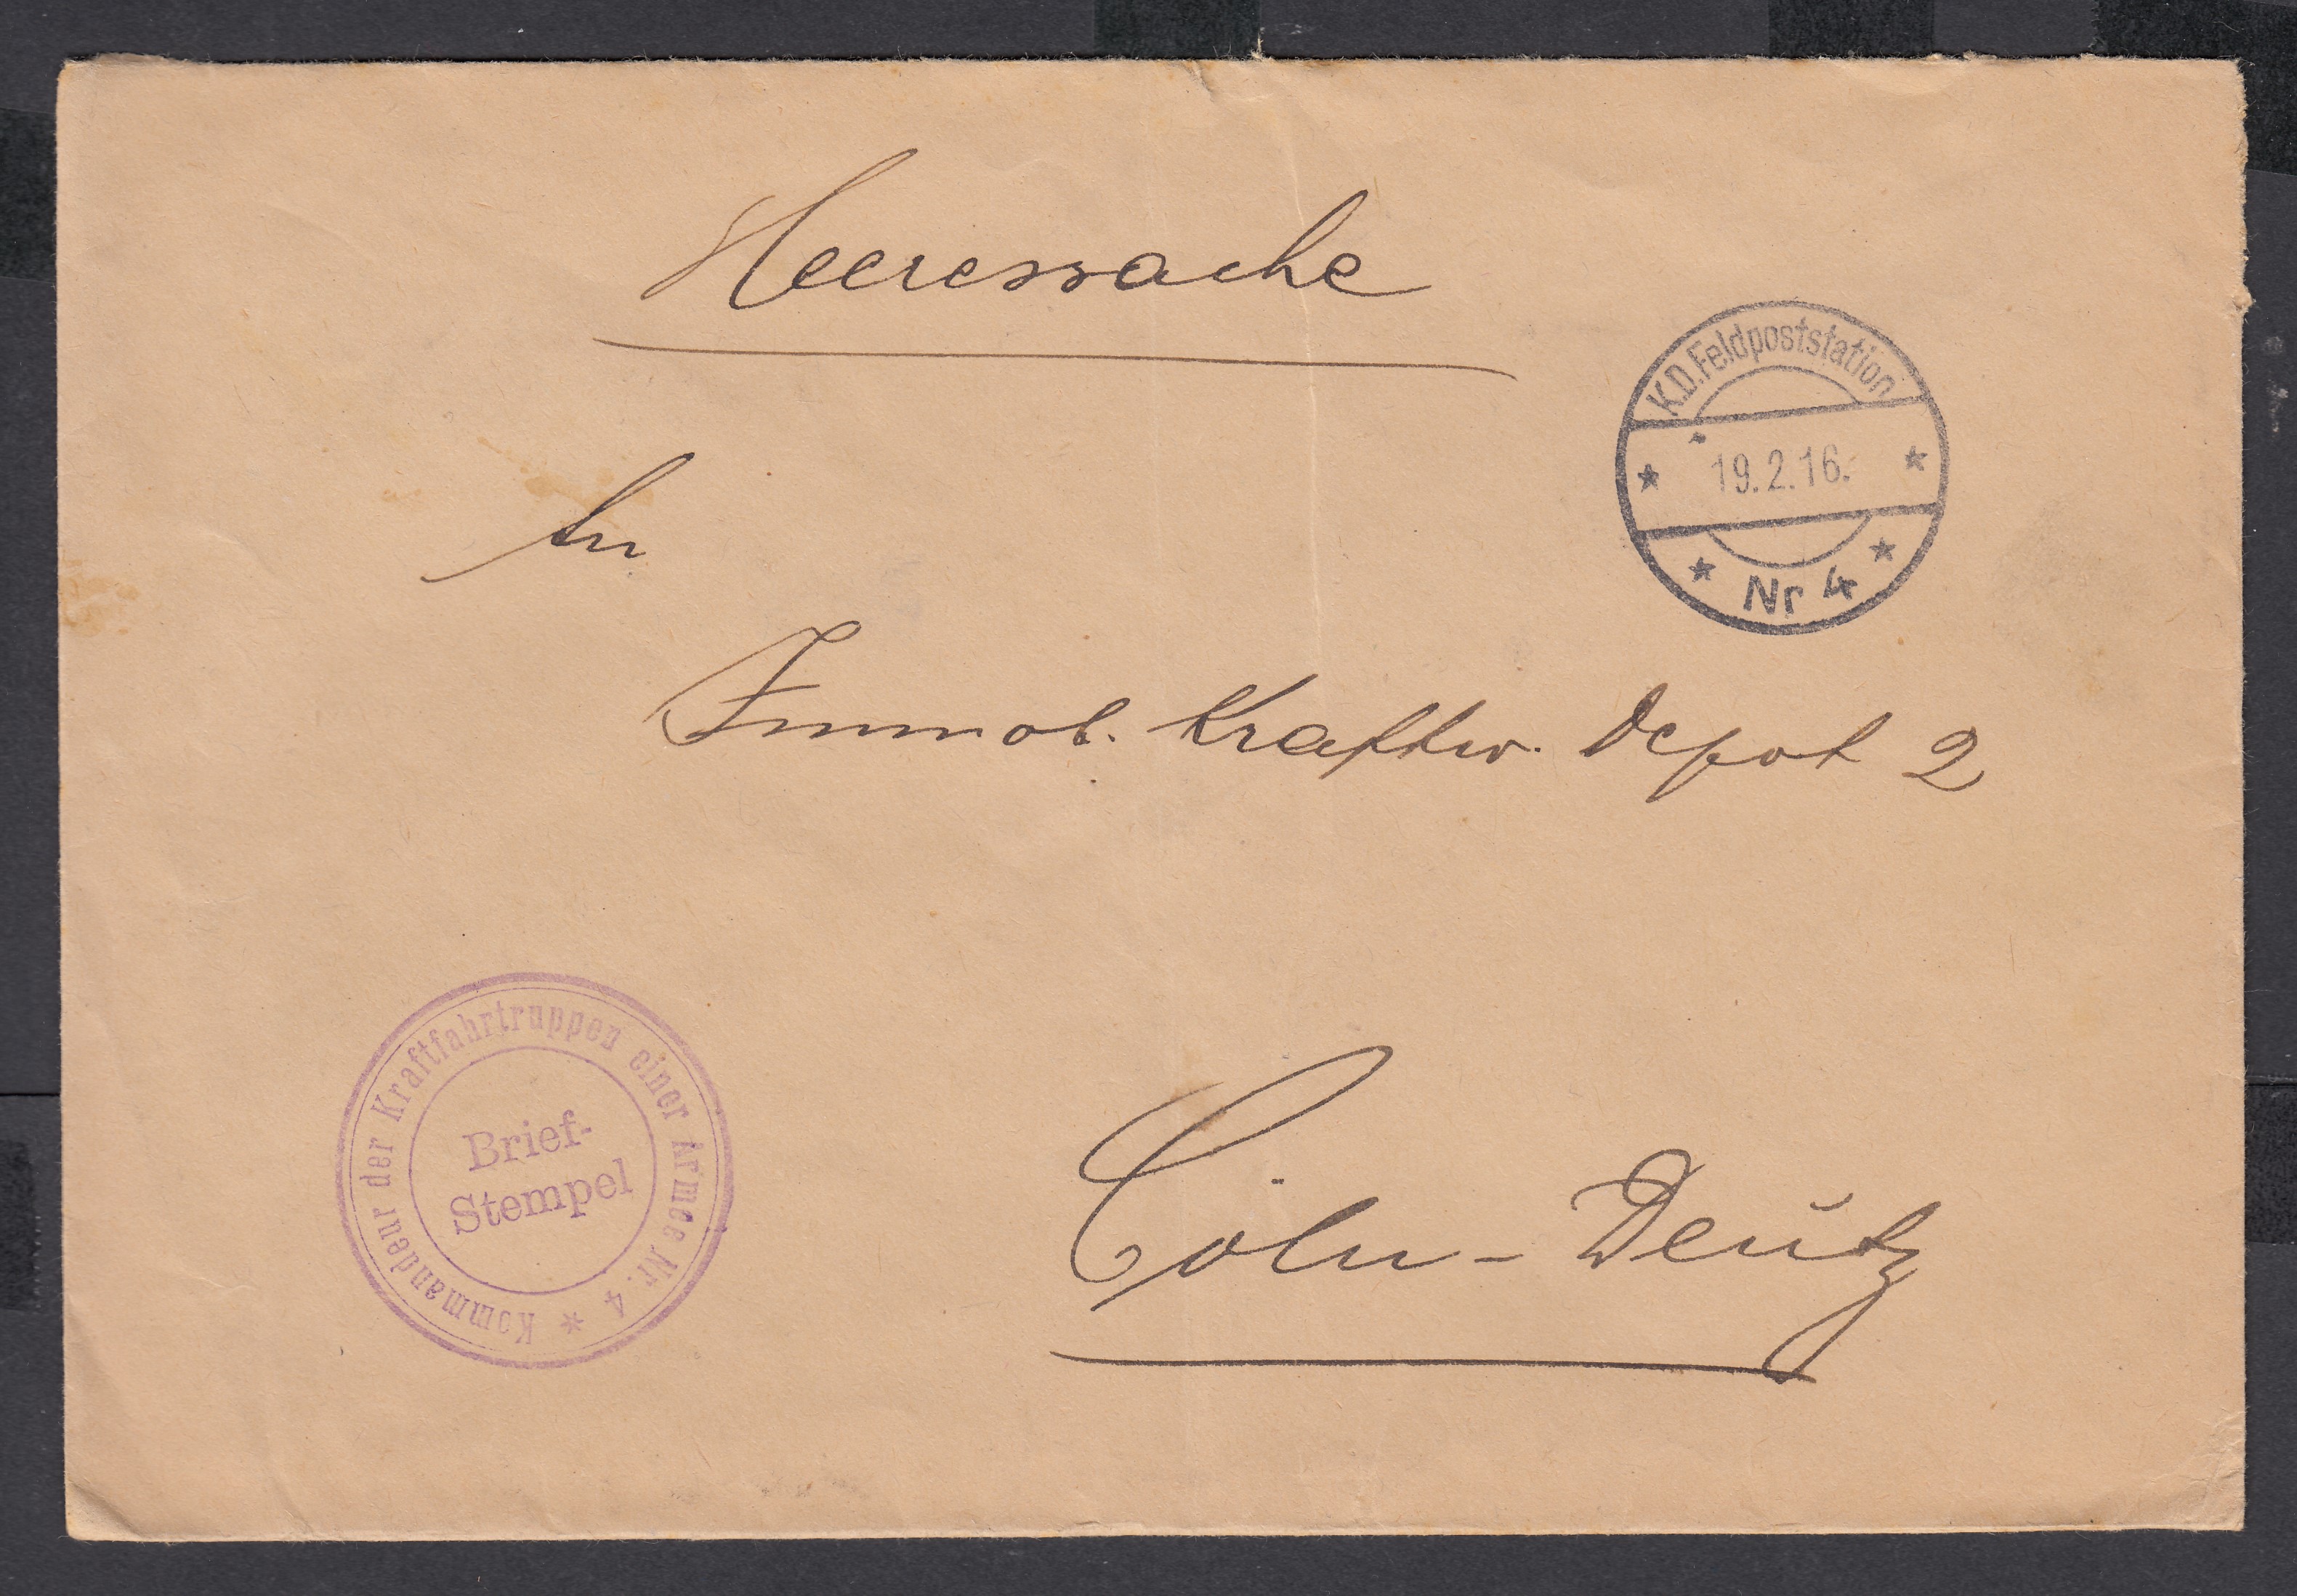 Heeressache
K.D.Feldpoststation
19.2.16.
Nr 4
An
Immob. Kraftw. Depot 2
Kommandeur der Kraftfahrtruppen einer Armee Nr. 4
Brief-
Stempel
Cöln-Deutz